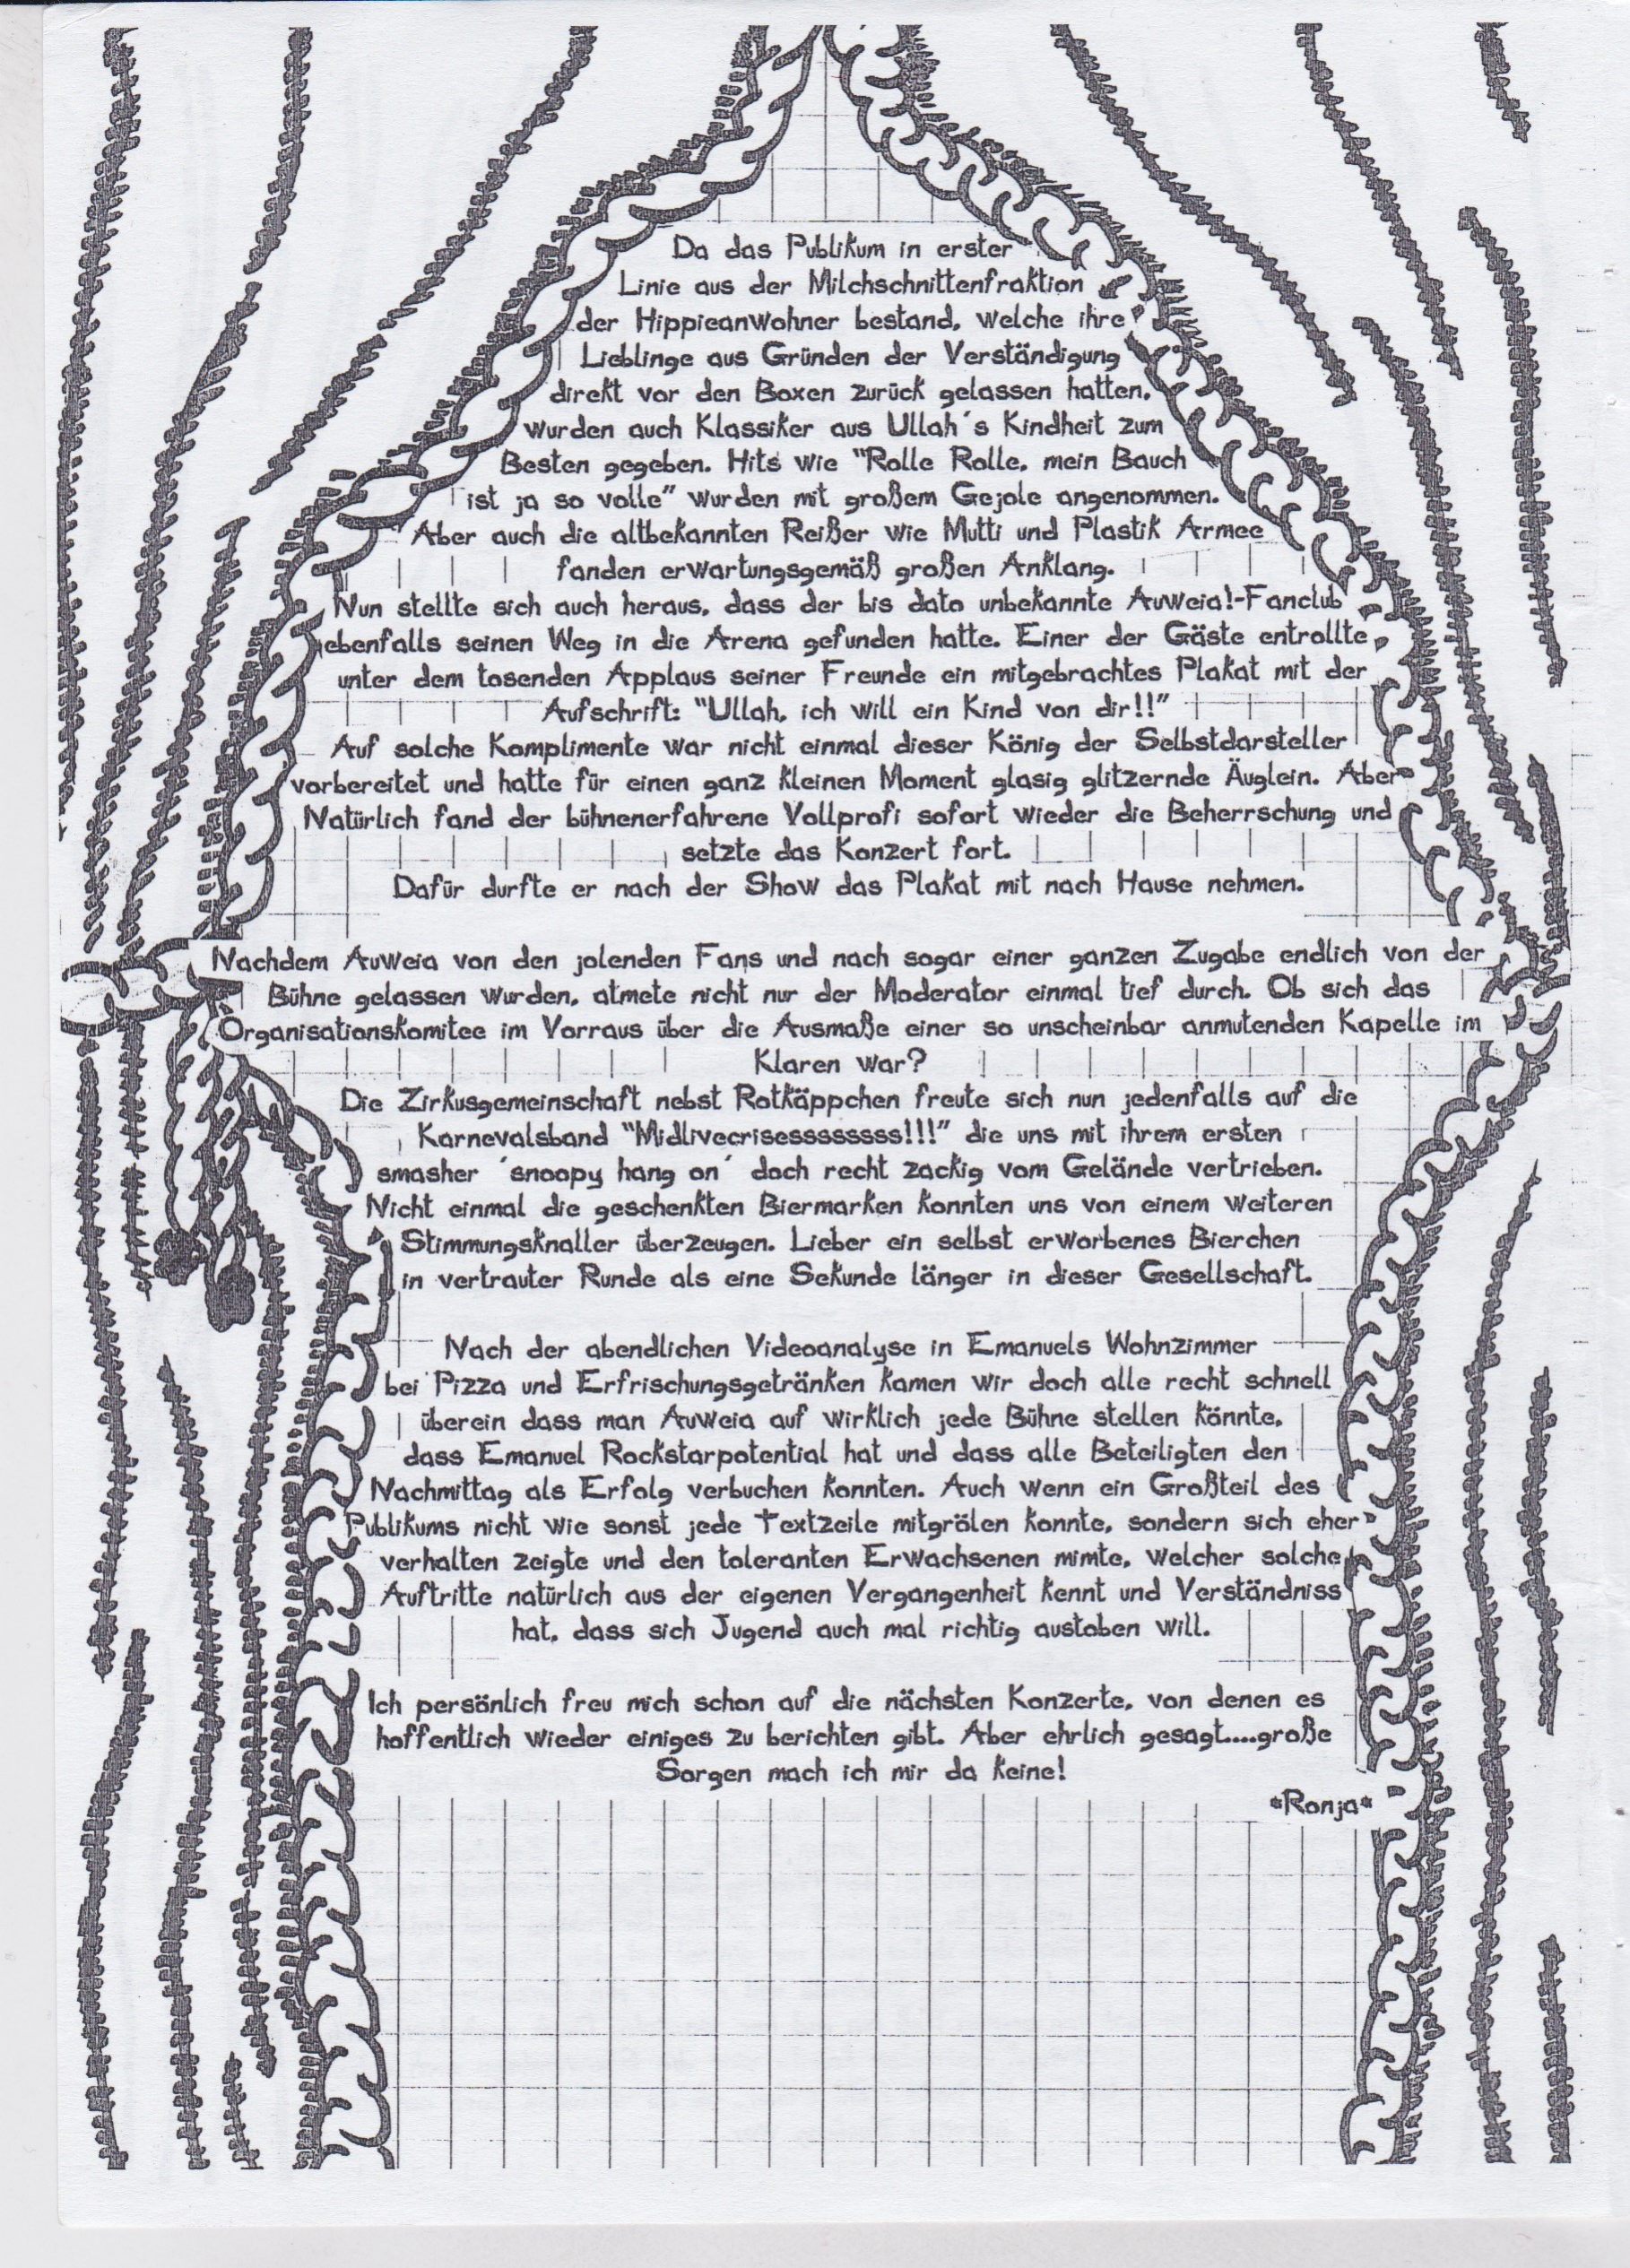 Da das Publikum in erster
Linie aus der Milchschnittenfraktion
der Hippieanwohner bestand, welche ihre
Lieblinge aus Gründen der Verständigung
direkt vor den Boxen zurück gelassen hatten,
wurden auch Klassiker aus Ullah´s Kindheit zum
Besten gegeben. Hits wie "Rolle Rolle, mein Bauch
ist ja so volle" wurden mit großem Gejole angenommen.
Aber auch die altbekannten Reißer wie Mutti und Plastik Armee
fanden erwartungsgemäß großen Anklang.
Nun stellte sich auch heraus, dass der bis dato unbekannte Auweia!-Fanclub
ebenfalls seinen Weg in die Arena gefunden hatte. Einer der Gäste entrollte
unter dem tosenden Applaus seiner Freunde ein mitgebrachtes Plakat mit der
Aufschrift: "Ullah, ich will ein Kind von dir!!"
Auf solche Komplimente war nicht einmal dieser König der Selbstdarsteller
vorbereitet und hatte für einen ganz kleinen Moment glasig glitzernde Äuglein. Aber
Natürlich fand der bühnenerfahrene Vollprofi sofort wieder die Beherrschung und
setzte das Konzert fort.
Dafür durfte er nach der Show das Plakat mit nach Hause nehmen.
Nachdem Auweia von den jolenden Fans und nach sogar einer ganzen Zugabe endlich von der
Bühne gelassen wurden, atmete nicht nur der Moderator einmal tief durch. Ob sich das
Organisationskomitee im Vorraus über die Ausmaße einer so unscheinbar anmutenden Kapelle im
Klaren war?
Die Zirkusgemeinschaft nebst Rotkäppchen freute sich nun jedenfalls auf die
Karnevalsband "Midlivecrisesssssssss!!!" die uns mit ihrem ersten
smasher ´snoopy hang on´ doch recht zackig vom Gelände vertrieben.
Nicht einmal die geschenkten Biermarken konnten uns von einem weiteren
Stimmungsknaller überzeugen. Lieber ein selbst erworbenes Bierchen
in vertrauter Runde als eine Sekunde länger in dieser Gesellschaft.
Nach der abendlichen Videoanalyse in Emanuels Wohnzimmer
bei Pizza und Erfrischungsgetränken kamen wir doch alle recht schnell
überein dass man Auweia auf wirklich jede Bühne stellen könnte,
dass Emanuel Rockstarpotential hat und dass alle Beteiligten den
Nachmittag als Erfolg verbuchen konnten. Auch wenn ein Großteil des
Publikums nicht wie sonst jede Textzeile mitgrölen konnte, sondern sich eher
verhalten zeigte und den toleranten Erwachsenen mimte, welcher solche
Auftritte natürlich aus der eigenen Vergangenheit kennt und Verständniss
hat, dass sich Jugend auch mal richtig austoben will.
Ich persönlich freu mich schon auf die nächsten Konzerte, von denen es
hoffentlich wieder einiges zu berichten gibt. Aber ehrlich gesagt....große
Sorgen mach ich mir da keine!
*Ronja*